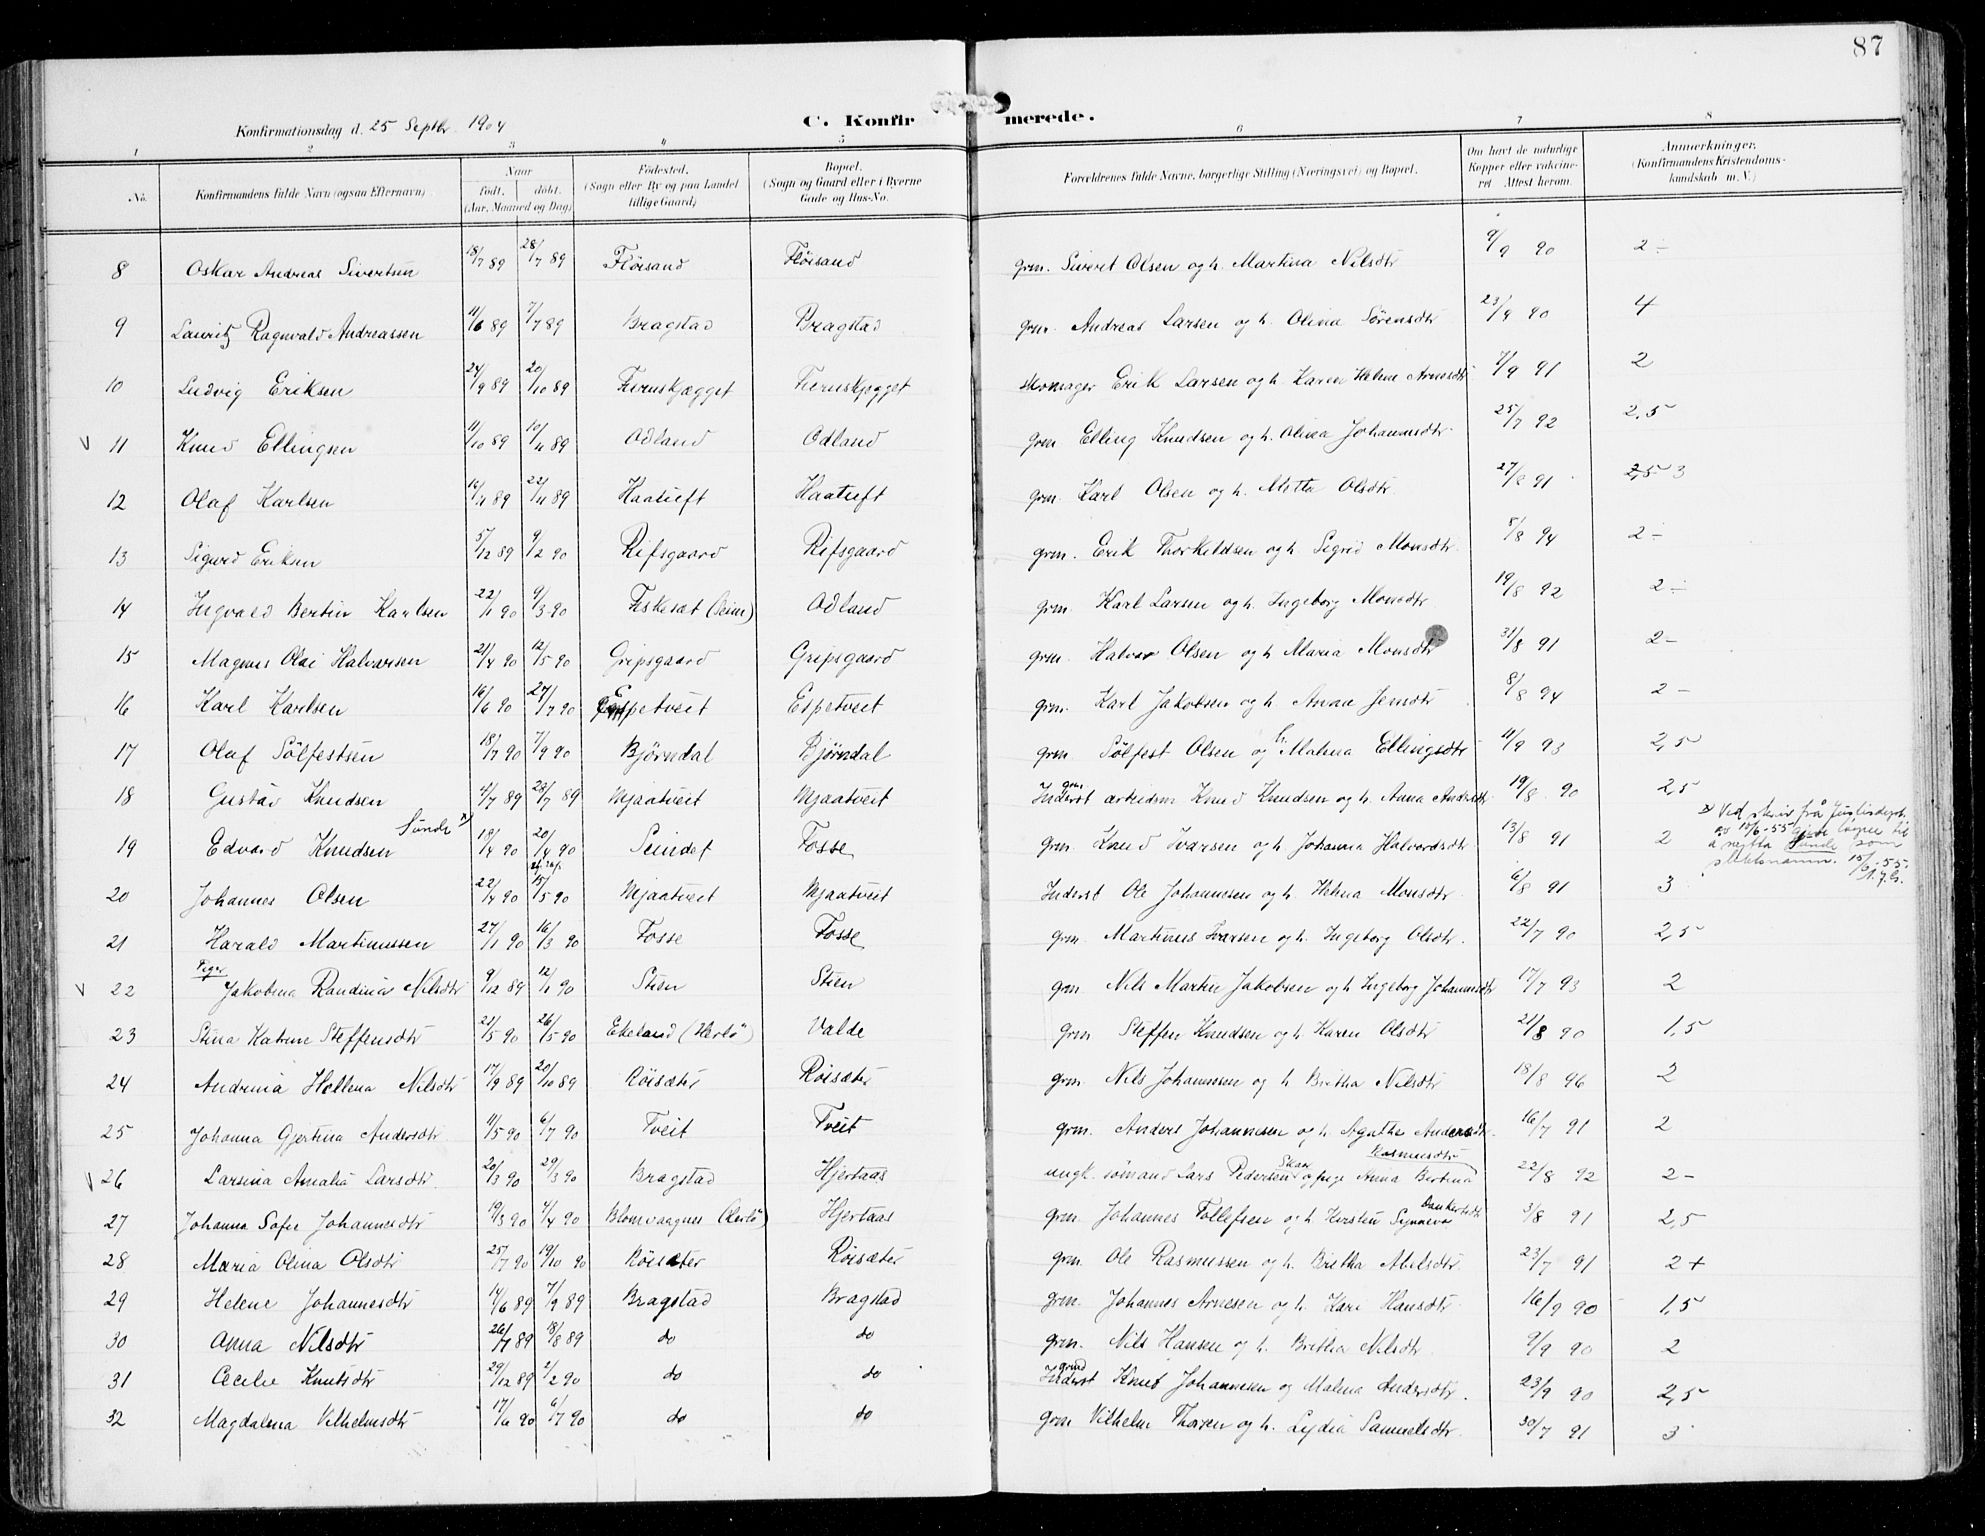 87
Konfirmationsdag d. 25 Septbr. 1904 C. Konfirmerede.
1 2 3 4 5 6 7 8
No. Konfirmandens fulde Navn (ogsaa Efternavn) Naar født, døbt. (Aar, Maaned og Dag) Fødested. (Sogn eller By og paa Landet tillige Gaard) Bopæl. (Sogn og Gaard eller i Byerne Gade og Hus-No. Forældrenes fulde Navne, borgerlige Stilling (Næringsvei) og Bopæl. Om havt de naturlige Kopper eller vakcineret. Attest herom. Anmerkninger. (Konfirmandens Kristendomskundskab m. V.)
8 Oskar Andreas Sivertsen 18/7 89 28/7 89 Fløisand Fløisand grm. Sivert Olsen og h. Martina Nilsdtr 9/9 90 2 -
9 Lauritz Ragnvald Andreassen 11/6 89 7/7 89 Bragstad Bragstad grm. Andreas Larsen og h. Olina Sørensdtr 23/9 90 4
10 Ludvig Eriksen 24/9 89 20/10 89 Furuskjægget Furuskjægget skomager Erik Larsen og h. Karen Helene Arnesdtr 7/9 91 2
V 11 Knud Ellingsen 11/10 89 10/11 89 Odland Odland grm Elling Knudsen og h. Olina Johannesdtr 25/7 92 2,5
12 Olaf Karlsen 89 89 Haatuft Haatuft grm. Karl Olsen og h. Metta Olsdtr. 91 2,5 3
13 Sigurd Eriksen 5/12 89 9/2 90 Rifsgaard Rifsgaard grm. Erik Thorkildsen og h. Sigrid Monsdtr. 8/8 94 2 -
14 Ingvald Bertin Karlsen 22/1 90 9/3 90 Fiskesæt (Seim) Odland grm Karl Larsen og h. Ingeborg Monsdtr 19/8 92 2 -
15 Magnus Olai Halvorsen 21/4 90 12/5 90 Gripsgaard Gripsgaard grm. Halvor Olsen og h Maria Monsdtr 31/8 91 2 -
16 Karl Karlsen 16/6 90 27/7 90 Espetveit Espetveit grm. Karl Jakobsen og h. Anna Jensdtr 8/8 94 2 -
17 Olaf Sølfestsen 18/7 90 7/9 90 Bjørndal Bjørndal grm Sølfest Olsen og h. Malena Ellingsdtr 11/9 93 2,5
18 Gustav Knudsen 4/7 89 28/7 89 Mjaatveit Mjaatveit Inderst grm arbeidsm Knud Knudsen og h. Anna Andersdtr 19/8 90 2,5
19 Edvard Knudsen Sunde x) 18/4 90 20/4 90 Seindet Fosse grm. Knud Ivarsen og h. Johanna Halvordsdtr 13/8 91 2
x) Ved skriv frå Justisdept.
av 10/6-55 gjeve løyve til
å nytta Sunde som
slektsnamn. 15/6-55.
20 Johannes Olsen 22/4 90 15/5 90 Mjaatveit Mjaatveit Inderst Ole Johannesen og h. Helena Monsdtr. 6/8 91 3
21 Harald Martinussen 27/1 90 16/3 90 Fosse Fosse grm. Martinus Ivarsen og h. Ingeborg Olsdtr. 22/7 90 2,5
Piger
V 22 Jakobina Randina Nilsdtr 9/12 89 12/1 90 Stien Stien grm. Nils Martin Jakobsen og h Ingeborg Johannesdtr 17/7 93 2
23 Stina Katrine Steffensdtr 21/5 90 26/5 90 Ekeland (Herlø) Valde grm Steffen Knudsen og h. Karen Olsdtr 21/8 90 1,5
24 Andrina Hellena Nilsdtr 17/9 89 20/10 89 Røisæter Røisæter grm. Nils Johannesen og h Britha Nilsdtr 18/8 96 2
25 Johanna Gjertina Andersdtr 11/5 90 6/7 90 Tveit Tveit grm. Anders Johannesen og h. Agatha Andersdtr. 16/7 91 2
V 26 Larsina Amalia Larsdtr. 20/3 90 29/3 90 Bragstad Hjertaas ungk. sømand Lars Pedersen og pige Anna Bertina Rasmusdtr 22/8 92 2 -
27 Johanna Sofie Johannesdtr 19/3 90 4/4 90 Blomvaagnes (Herlø) Hjertaas grm. Johannes Tollefsen og h. Kirsten Synneva Dankertsdtr 3/8 91 2,5
28 Maria Olina Olsdtr 25/7 90 19/10 90 Røisæter Røisæter grm. Ole Rasmussen og h. Britha Nilsdtr. 23/7 91 2 +
29 Helene Johannesdtr 14/6 89 7/9 89 Bragstad Bragstad grm. Johannes Arnesen og h. Kari Hansdtr. 16/9 90 1,5
30 Anna Nilsdtr 26/7 89 18/8 89 do do grm. Nils Hansen og h. Britha Nilsdtr. 9/9 90 2
31 Cecilie Knutsdtr 29/12 89 2/2 90 do do Inderst Knut Johannesen og Malena Andersdtr. 23/9 90 2,5
32 Magdalena Vilhelmsdtr 17/6 90 6/7 90 do do grm Vilhelm Thoresen og h. Lydia Samuelsdtr. 30/7 91 3